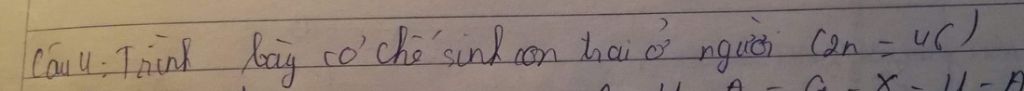 Câu 4: Trình bày cơ chế sinh con trai ở người (2n = 46)
A - G - X - U - A